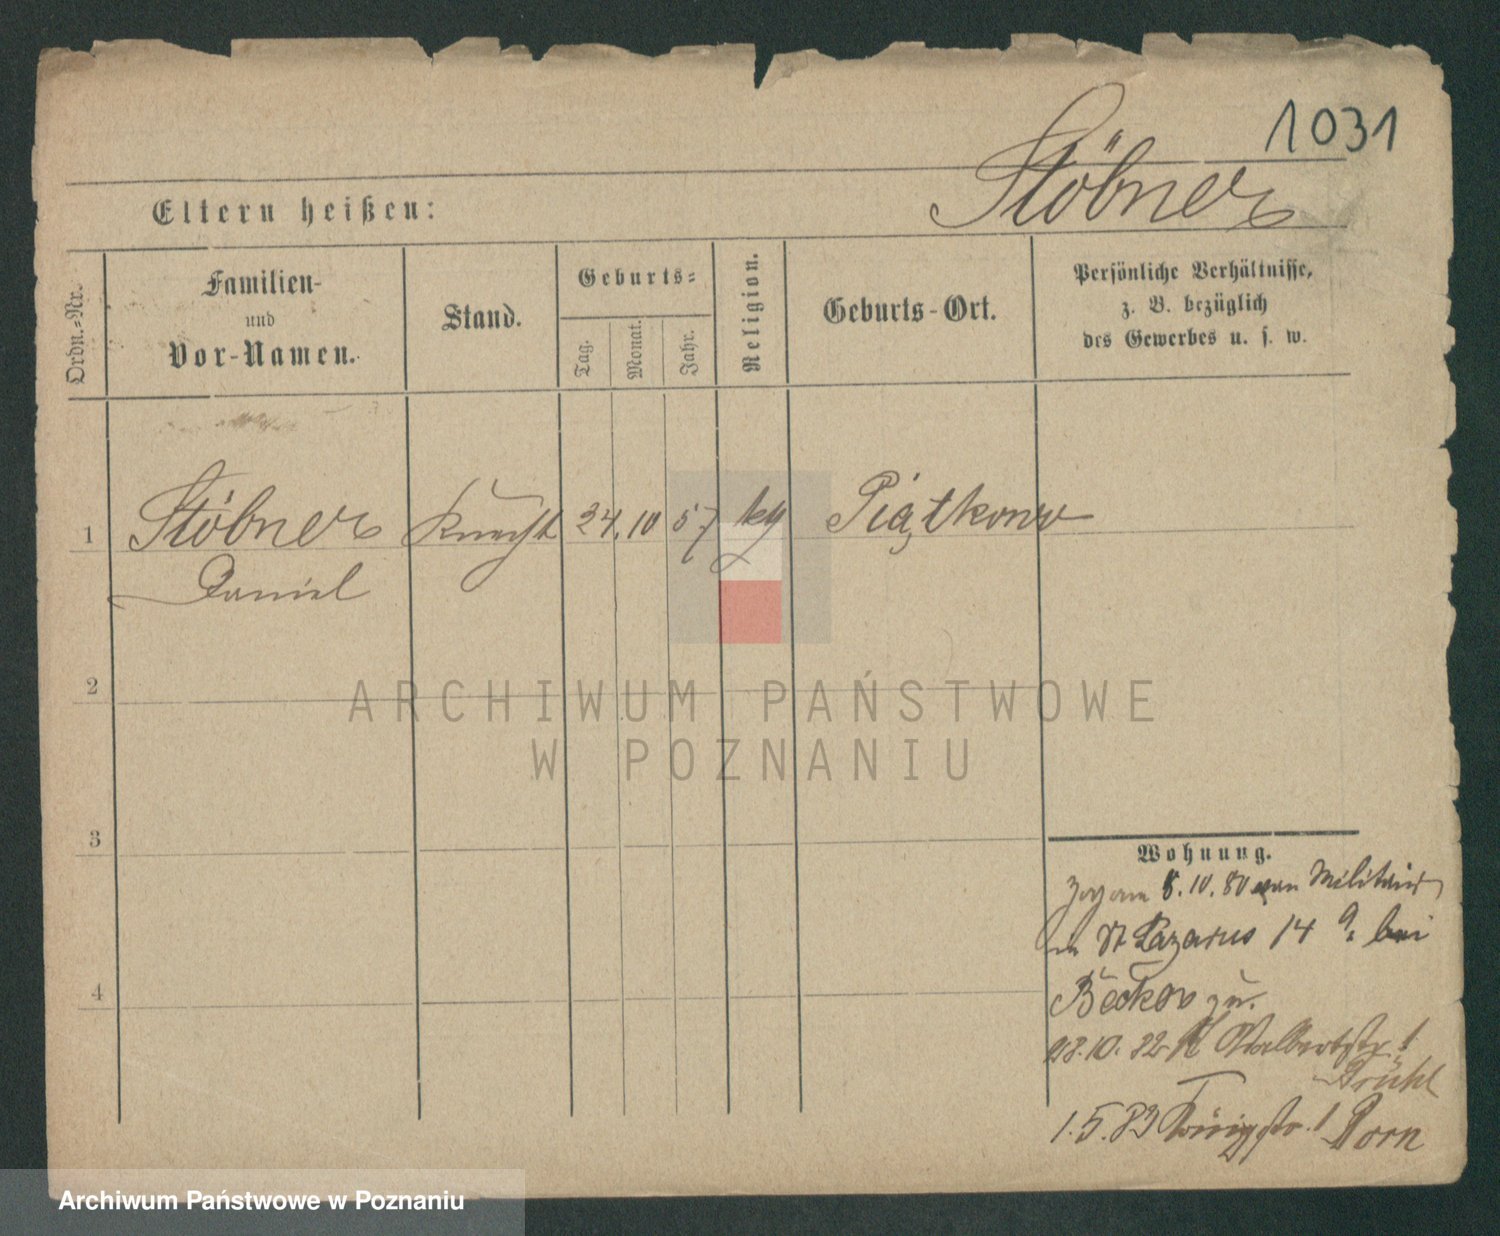 1031
Stöbner
Eltern heißen:
Ordn.-Nr.
Familien-
und
Vor-Namen.
Stand.
Geburts-
Tag.
Monat.
Jahr.
Religion.
Geburts-Ort.
Persönliche Verhältnisse,
z. B. bezüglich
des Gewerbes u. s. w.
1 Stöbner Knecht 24. 10 57 Piątkowo
Daniel
2
ARCHIWUM PAŃSTWOWE
W POZNANIU
3
Wohnung.
Zog am 8. 10. 80 Militair
in St Lazarus 14 bei
4
28. 10. 82
1. 5. 83 Königstr. 1
Archiwum Państwowe w Poznaniu